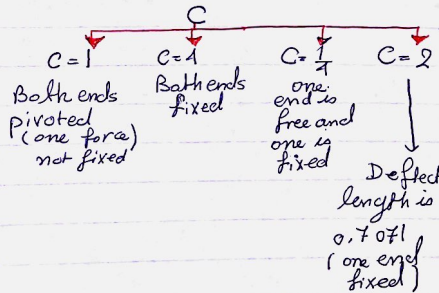 C
C = 1
Both ends
pivoted
(one force)
not fixed
C = 4
Both ends
fixed
C = 1/4
one
end is
free and
one is
fixed
C = 2
Deflect
length is
0.7071
(one end
fixed)